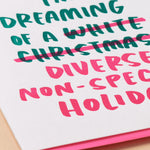 DREAMING
OF A WHITE
CHRISTMAS
DIVERSE
NON-SPE
HOLID